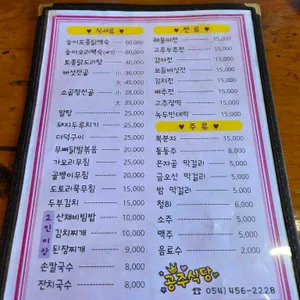 ♥ 식사류 ♥
능이토종닭백숙 60,000
능이오리백숙 90,000
토종닭도리탕 40,000
버섯전골 小 36,000
大 45,000
소곱창전골 小 25,000
大 35,000
알탕 25,000
돼지두루치기 25,000
더덕구이 25,000
무뼈닭발볶음 20,000
가오리무침 25,000
골뱅이무침 20,000
도토리묵무침 15,000
두부김치 15,000
2인이상
산채비빔밥 10,000
김치찌개 9,000
된장찌개 9,000
손칼국수 8,000
잔치국수 8,000
♥ 전류 ♥
해물파전 15,000
고추부추전 15,000
감자전 15,000
모듬버섯전 15,000
김치전 15,000
배추전 15,000
고추장떡 15,000
녹두빈대떡 15,000
♥ 주류 ♥
복분자 15,000
동동주 8,000
은자골 막걸리 5,000
금오산 막걸리 5,000
밤 막걸리 5,000
청하 6,000
소주 5,000
맥주 5,000
음료수 2,000
공주식당
☎ 054) 456-2228